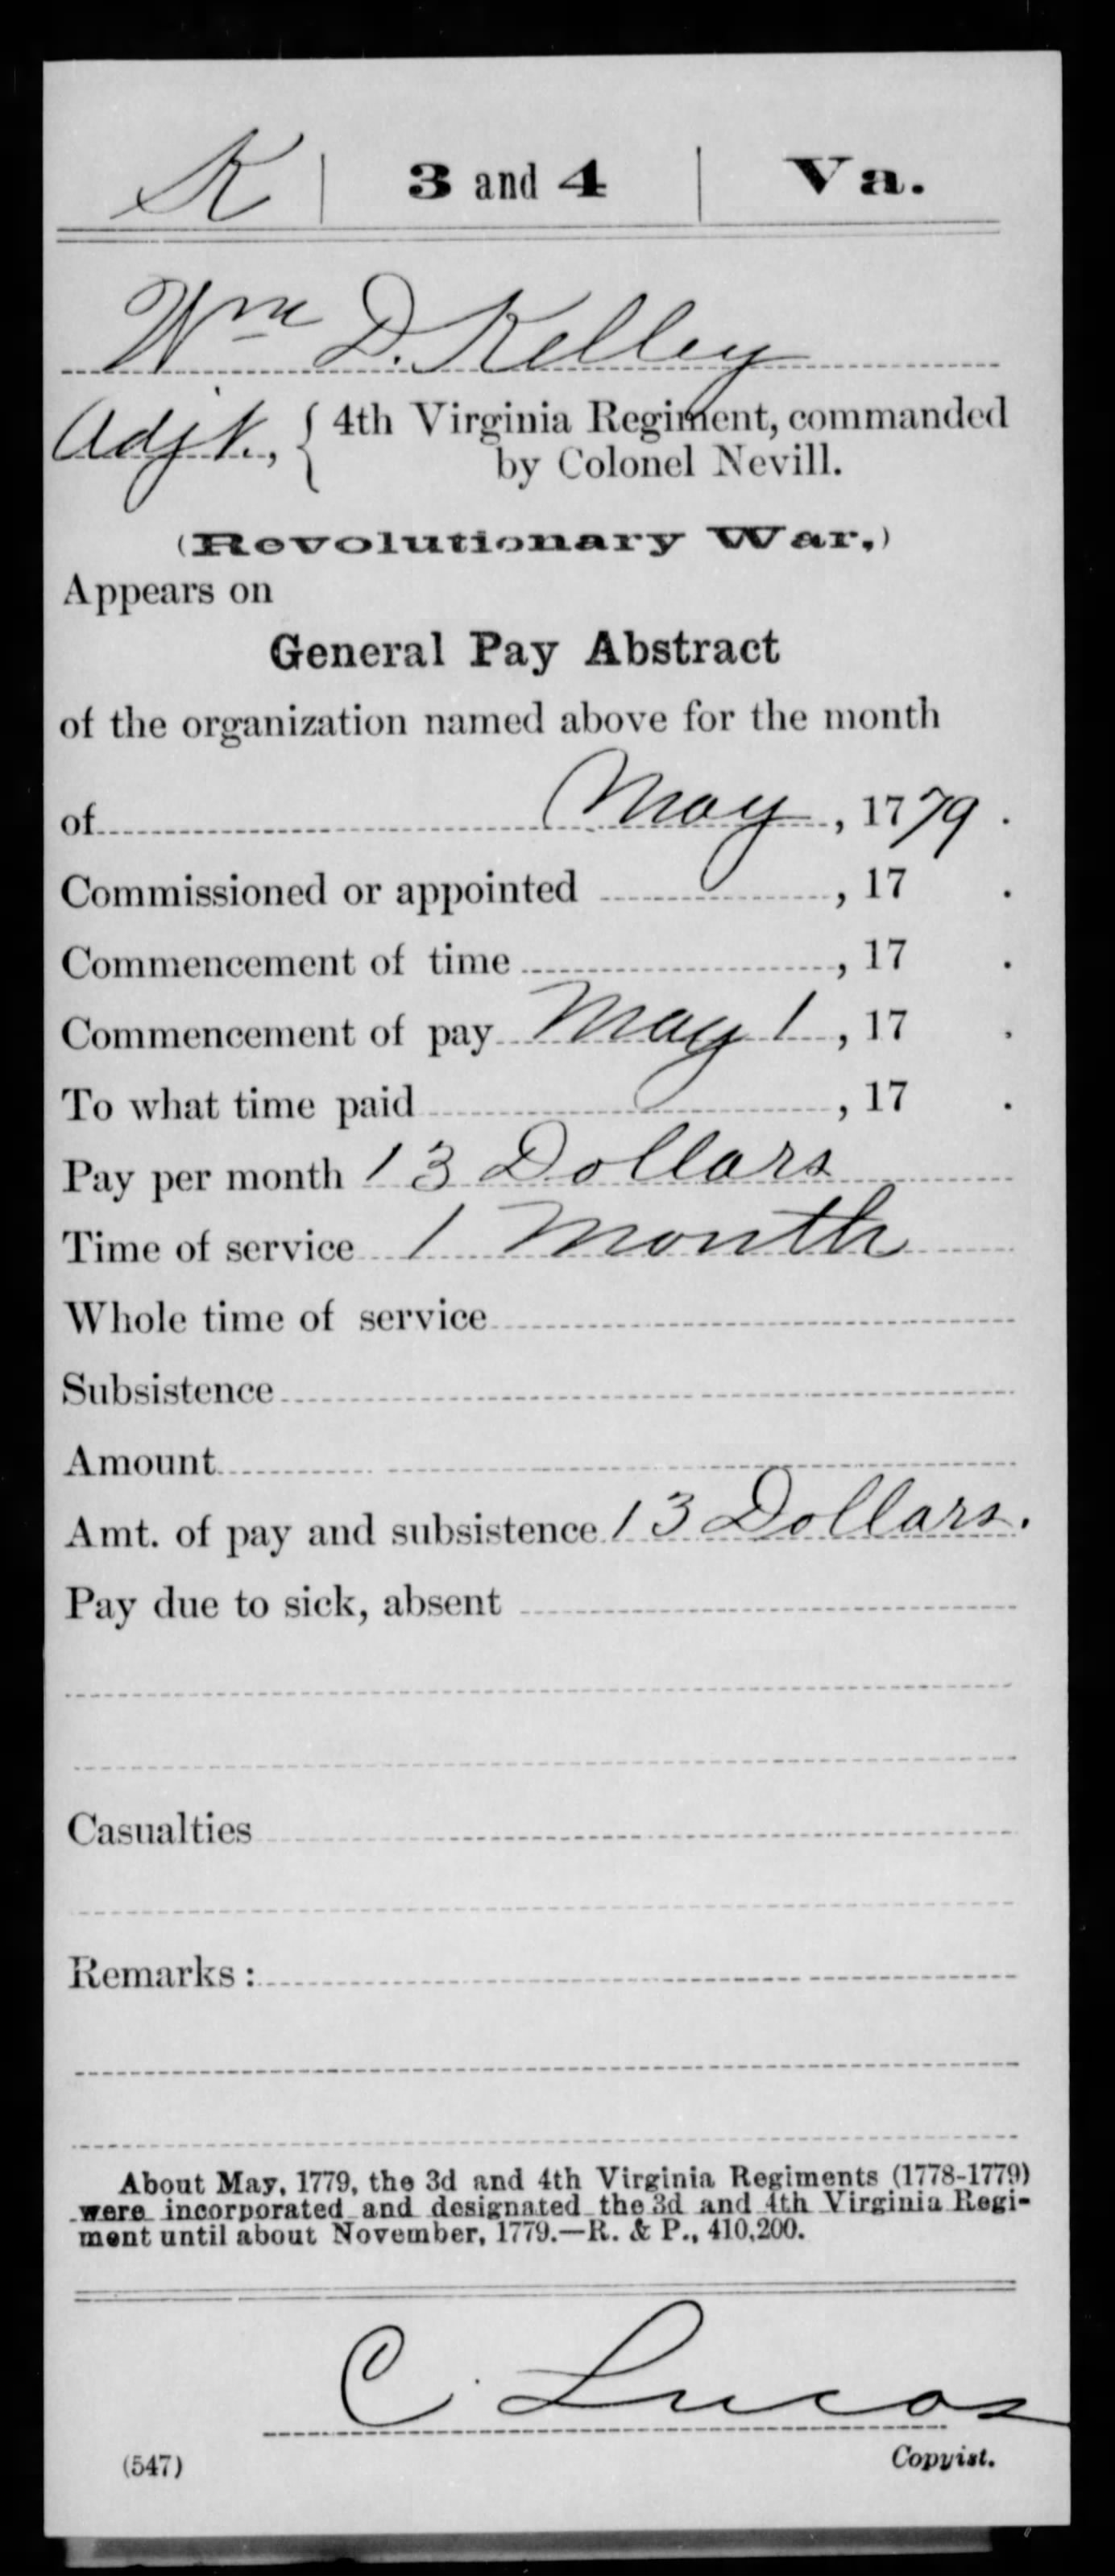 K | 3 and 4 | Va.
Wm D. Kelley
Adjt., { 4th Virginia Regiment, commanded
by Colonel Nevill.
(Revolutionary War.)
Appears on
General Pay Abstract
of the organization named above for the month
of May, 1779.
Commissioned or appointed , 17 .
Commencement of time , 17 .
Commencement of pay May 1, 17 .
To what time paid , 17 .
Pay per month 13 Dollars
Time of service 1 Month
Whole time of service
Subsistence
Amount
Amt. of pay and subsistence 13 Dollars.
Pay due to sick, absent
Casualties
Remarks:
About May, 1779, the 3d and 4th Virginia Regiments (1778-1779)
were incorporated and designated the 3d and 4th Virginia Regi-
ment until about November, 1779.—R. & P., 410,200.
C. Lucas
(547) Copyist.